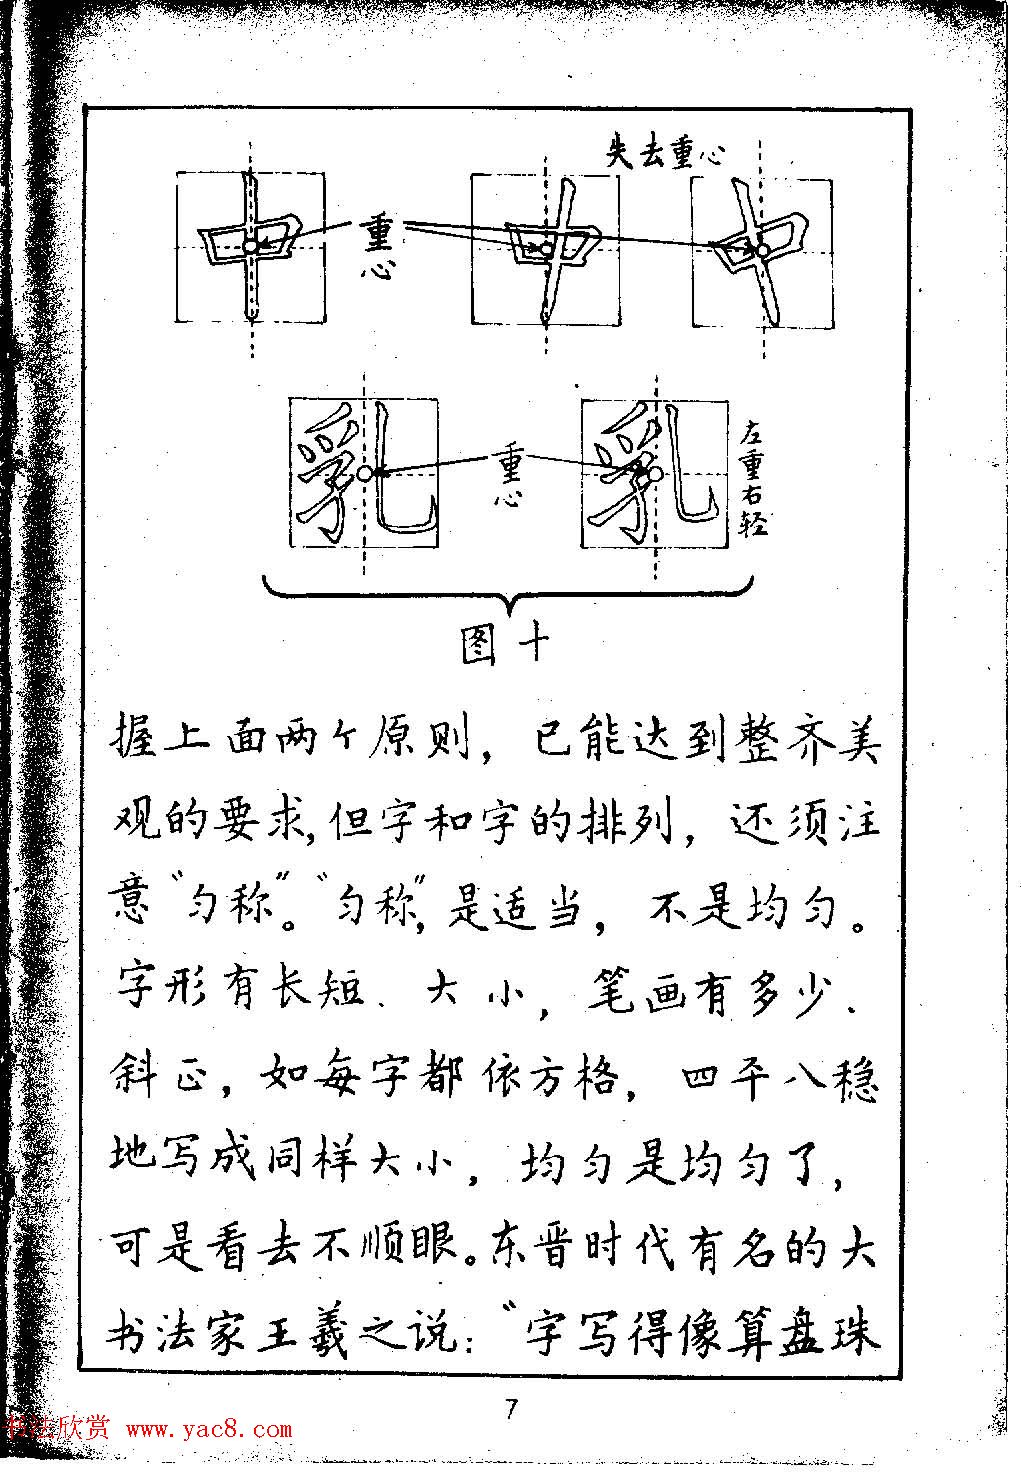 失去重心
重心
重心
左重右轻
图十
握上面两个原则，已能达到整齐美
观的要求，但字和字的排列，还须注
意“匀称”。“匀称”，是适当，不是均匀。
字形有长短、大小，笔画有多少、
斜正，如每字都依方格，四平八稳
地写成同样大小，均匀是均匀了，
可是看去不顺眼。东晋时代有名的大
书法家王羲之说：“字写得像算盘珠
7
书法欣赏 www.yac8.com
中
中
中
乳
乳